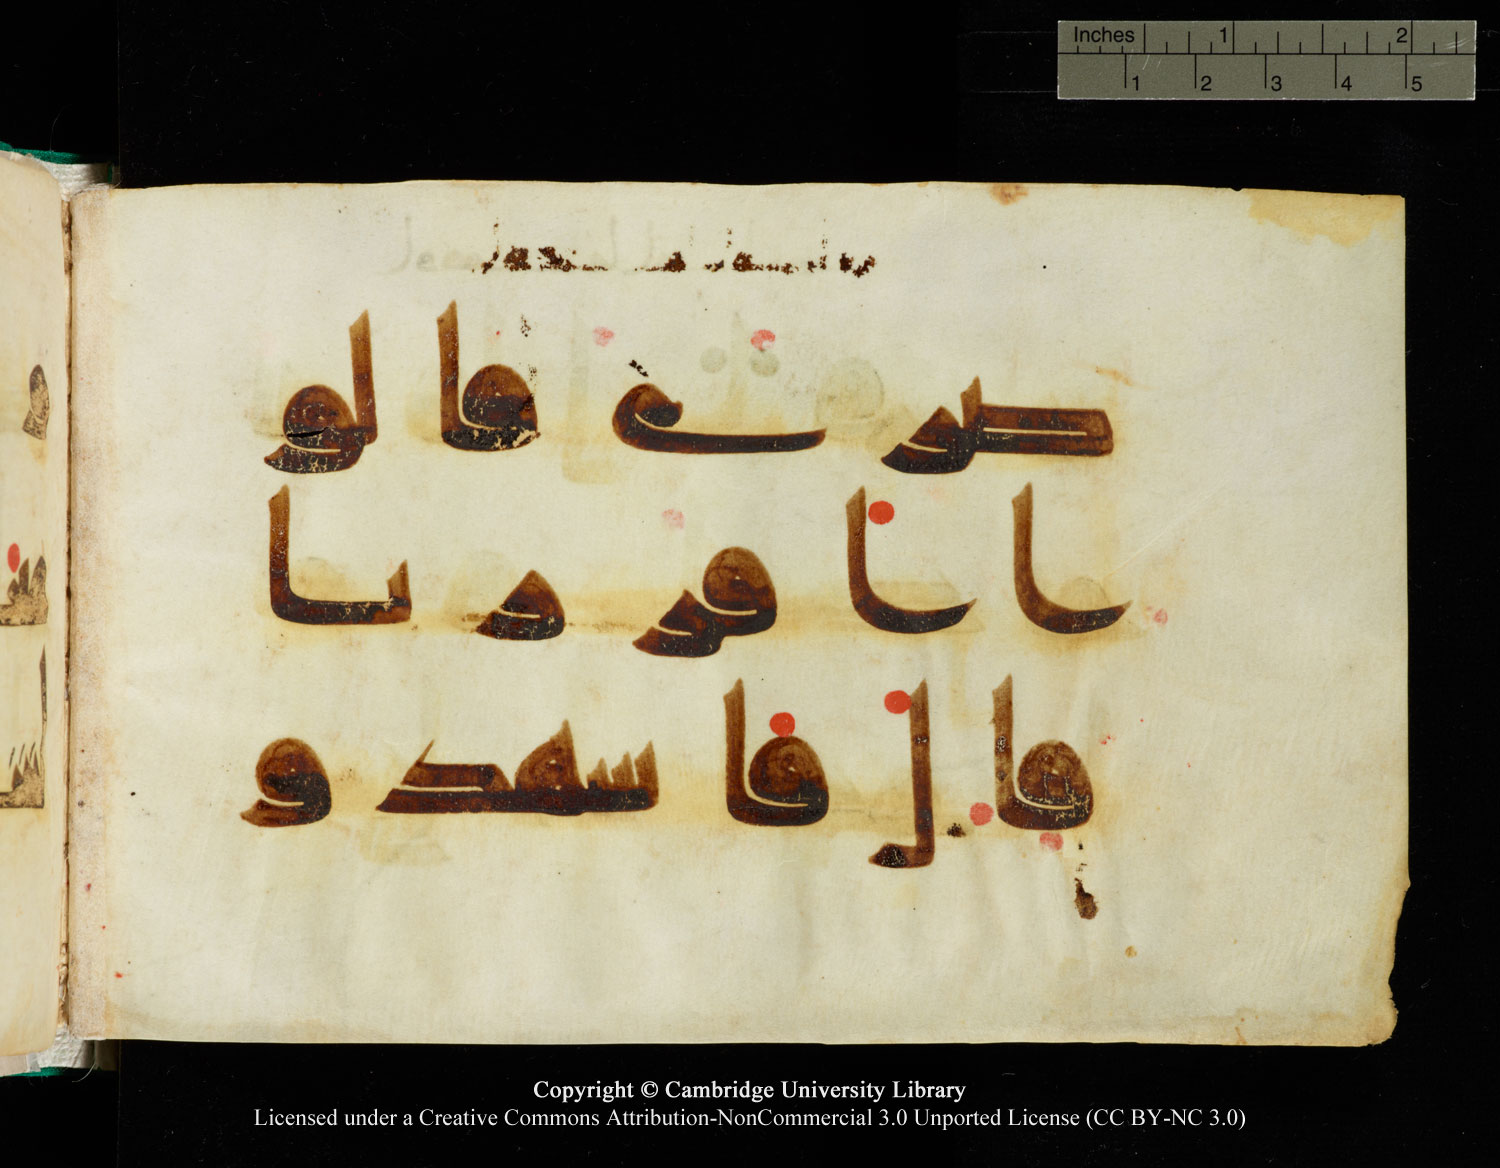 Inches 1 2
1 2 3 4 5
صرى قالو
ا اقررنا
قال فاشهدو
Copyright © Cambridge University Library
Licensed under a Creative Commons Attribution-NonCommercial 3.0 Unported License (CC BY-NC 3.0)